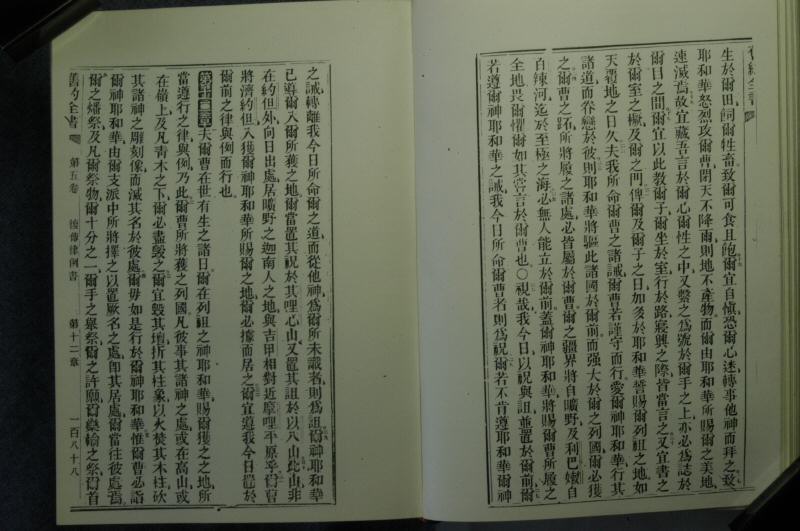 舊約全書
生於爾田飼爾牲畜致爾可食且飽爾宜自愼恐爾心迷轉事他神而拜之致
耶和華怒烈攻爾曹閉天不降雨則地不產物而爾由耶和華所賜之美地
速滅焉故宜藏吾言於爾心爾性之中又繫之爲號於爾手之上亦必爲誌於
爾目之間爾宜以此敎爾子爾坐於室行於路寢興之際皆當言之又宜書之
於爾室之橛及爾之門俾爾及爾子之日加多於耶和華誓賜爾列祖之地如
天覆地之日久夫我所命爾曹之諸誡爾曹若謹守而行愛爾神耶和華行其
諸道而眷戀於彼則耶和華將驅此諸國於爾前而强大於爾之列國爾必獲
之爾曹之跖所將履之諸處必皆屬於爾曹爾之疆界將自曠野及利巴嫩自
百辣河迄於至極之海必無人能立於爾前蓋爾神耶和華將賜爾曹所履之
全地畏爾懼爾如其當言於爾曹也〇視哉我今日以祝與詛並置於爾前爾
若遵爾神耶和華之誡我今日所命爾曹者則爲祝爾若不肯遵耶和華爾神
之誡轉離我今日所命爾之道而從他神爲爾所未識者則爲詛爾神耶和華
已導爾入爾所獲之地爾當置其祝於其哩心山又置其詛於以八山此山非
在約但外向日出處居曠野之迦南人之地與吉甲相對近摩哩平原乎爾曹
將濟約但入獲爾神耶和華所賜之地爾必據而居之爾宜遵我今日置於
爾前之律與例而行也
第十二章夫爾曹在世有生之諸日爾在列祖之神耶和華賜爾獲之之地所
當遵行之律與例乃此爾曹所將獲之列國凡彼事其諸神之處或在高山或
在嶺上及凡靑木之下爾必盡毀之爾宜毀其壇折其柱象以火焚其木柱砍
其諸神之雕刻像而滅其名於彼處爾毋如是行於爾神耶和華惟爾曹必詣
爾神耶和華由爾支派中所將擇之以置厥名之處卽其居處爾當往彼處焉
爾之燔祭及凡爾祭物爾十分之一爾手之舉祭爾之許願爾樂輸之祭爾首
舊約全書 第五卷 復傳律例書 第十二章 一百八十八